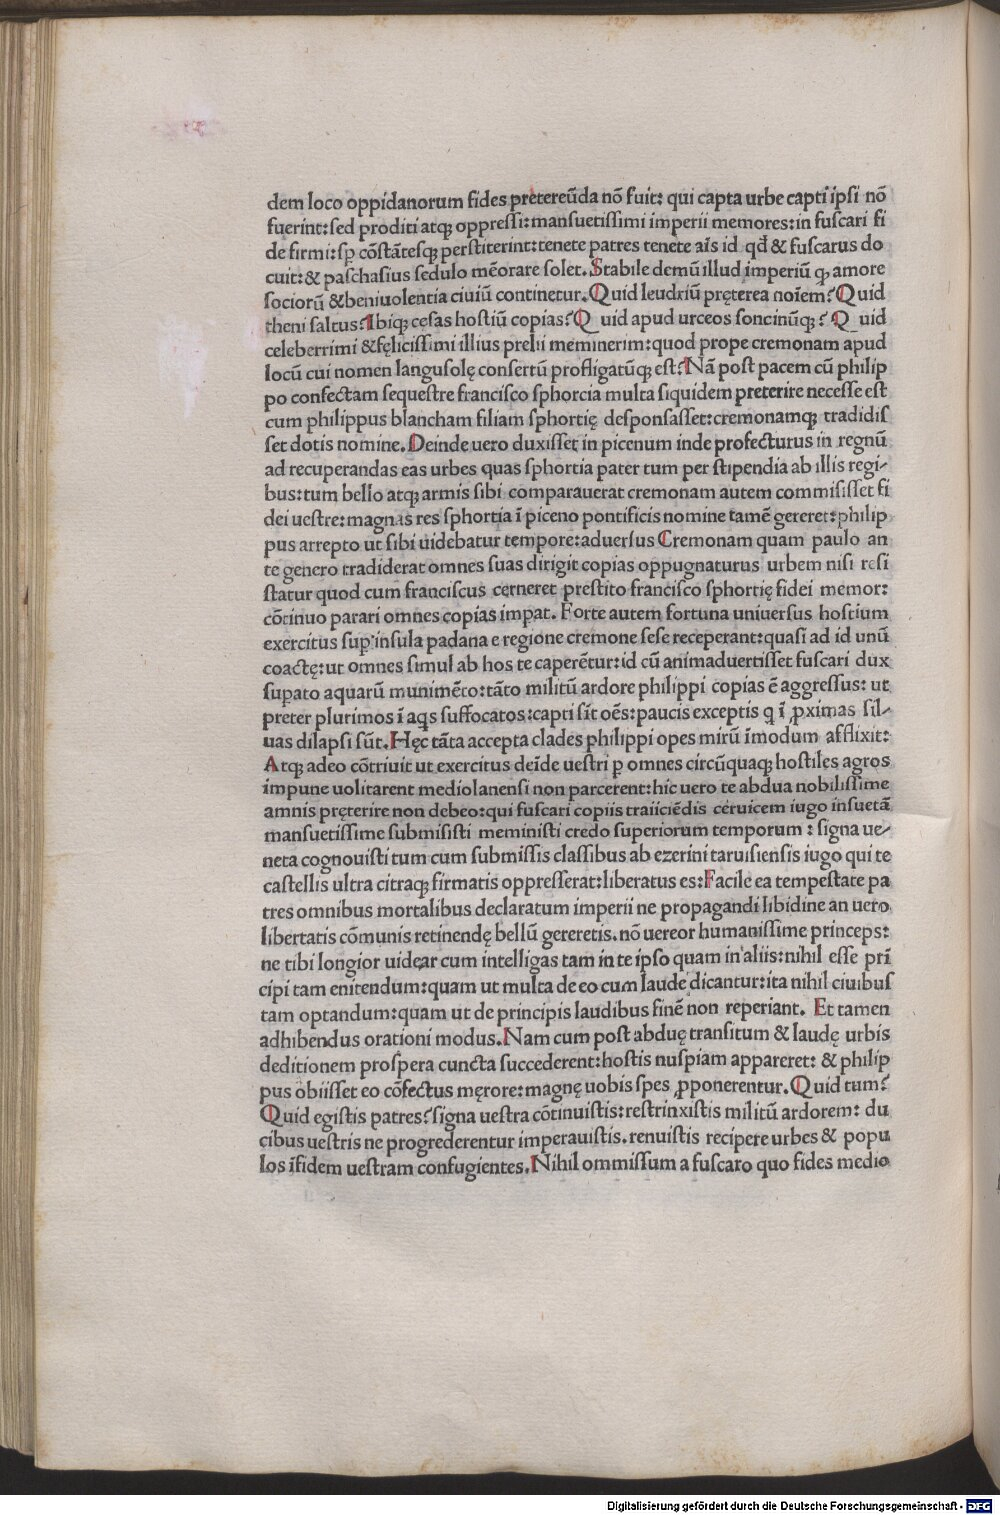 dem loco oppidanorum fides pretereũda nõ fuit: qui capta urbe capti ipsi nõ
fuerint: sed proditi atqꝫ oppressi: mansuetissimi imperii memores: in fuscari fi
de firmi: sp̱ cõstãtesqꝫ perstiterint: tenete patres tenete aĩs id qđ & fuscarus do
cuit: & paschasius sedulo mẽorare solet. Stabile demũ illud imperiũ qꝫ amore
sociorũ & beniuolentia ciuiũ continetur. Quid leudriũ pręterea noĩem? Quid
theni saltus? Ibiqꝫ cesas hostiũ copias? Q uid apud urceos soncinũqꝫ? Q uid
celeberrimi & fęlicissimi illius prelii meminerim: quod prope cremonam apud
locũ cui nomen langusolę consertũ profligatũqꝫ est? Nã post pacem cũ philip
po confectam sequestre francisco sphorcia multa siquidem preterire necesse est
cum philippus blancham filiam sphortię desponsasset: cremonamqꝫ tradidis
set dotis nomine. Deinde uero duxisset in picenum inde profecturus in regnũ
ad recuperandas eas urbes quas sphortia pater tum per stipendia ab illis regi-
bus: tum bello atqꝫ armis sibi comparauerat cremonam autem commisisset fi
dei uestre: magnas res sphortia ĩ piceno pontificis nomine tamẽ gereret: philip
pus arrepto ut sibi uidebatur tempore: aduersus Cremonam quam paulo an
te genero tradiderat omnes suas dirigit copias oppugnaturus urbem nisi resi
statur quod cum franciscus cerneret prestito francisco sphortię fidei memor:
cõtinuo parari omnes copias impat. Forte autem fortuna uniuersus hostium
exercitus sup insula padana e regione cremone sese receperant: quasi ad id unũ
coactę: ut omnes simul ab hos te caperẽtur: id cũ animaduertisset fuscari dux
supato aquarũ munimẽto: tãto militũ ardore philippi copias ẽ aggressus: ut
preter plurimos ĩ aqs suffocatos: capti sĩt oẽs: paucis exceptis q ĩ ꝓximas sil-
uas dilapsi sũt. Hęc tãta accepta clades philippi opes mirũ ĩmodum afflixit:
Atqꝫ adeo cõtriuit ut exercitus deĩde uestri ꝑ omnes circũquaqꝫ hostiles agros
impune uolitarent mediolanensi non parcerent: hic uero te abdua nobilissime
amnis pręterire non debeo: qui fuscari copiis traiiciẽdis ceruicem iugo insuetã
mansuetissime submisisti meministi credo superiorum temporum : signa ue-
neta cognouisti tum cum submissis classibus ab ezerini taruisiensis iugo qui te
castellis ultra citraqꝫ firmatis oppresserat: liberatus es: Facile ea tempestate pa
tres omnibus mortalibus declaratum imperii ne propagandi libidine an uero
libertatis cõmunis retinendę bellũ gereretis. nõ uereor humanissime princeps:
ne tibi longior uidear cum intelligas tam in te ipso quam in aliis: nihil esse prĩ
cipi tam enitendum: quam ut multa de eo cum laude dicantur: ita nihil ciuibus
tam optandum: quam ut de principis laudibus finẽ non reperiant. Et tamen
adhibendus orationi modus. Nam cum post abduę transitum & laudę urbis
deditionem prospera cuncta succederent: hostis nuspiam appareret: & philip
pus obiisset eo cõfectus męrore: magnę uobis spes ꝓponerentur. Quid tum?
Quid egistis patres? signa uestra cõtinuistis: restrinxistis militũ ardorem: du
cibus uestris ne progrederentur imperauistis. renuistis recipere urbes & popu
los ĩ fidem uestram confugientes. Nihil ommissum a fuscaro quo fides medio
Digitalisierung gefördert durch die Deutsche Forschungsgemeinschaft - DFG